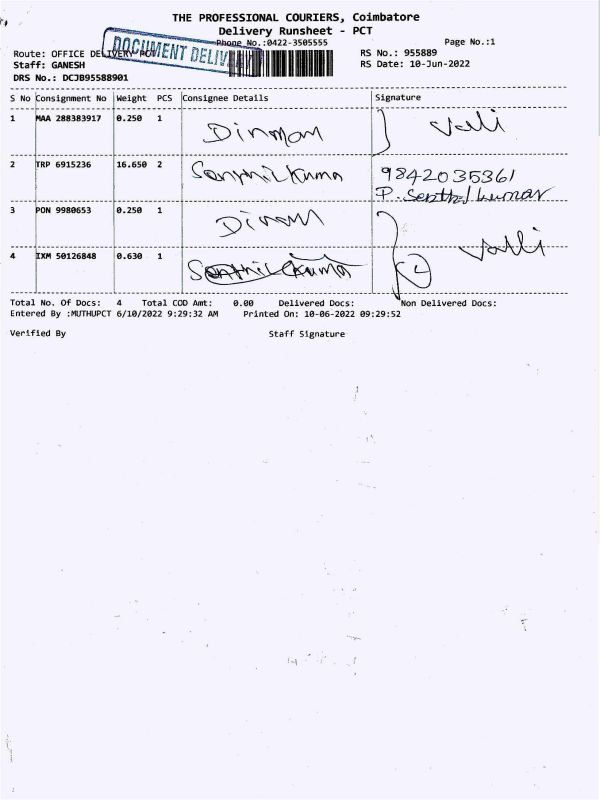 THE PROFESSIONAL COURIERS, Coimbatore
Delivery Runsheet - PCT
Phone No.:0422-3505555
Page No.:1
DOCUMENT DELIV
Route: OFFICE DELIVERY PCT
RS No.: 955889
Staff: GANESH
RS Date: 10-Jun-2022
DRS No.: DCJB95588901
S No Consignment No Weight PCS Consignee Details Signature
1 MAA 288383917 0.250 1 Valli
2 TRP 6915236 16.650 2 Senthil Kumar 9842035361
P. Senthil kumar
3 PON 9980653 0.250 1
4 IXM 50126848 0.630 1 Senthil Kumar 2 Valli
Total No. Of Docs: 4 Total COD Amt: 0.00 Delivered Docs: Non Delivered Docs:
Entered By :MUTHUPCT 6/10/2022 9:29:32 AM Printed On: 10-06-2022 09:29:52
Verified By Staff Signature